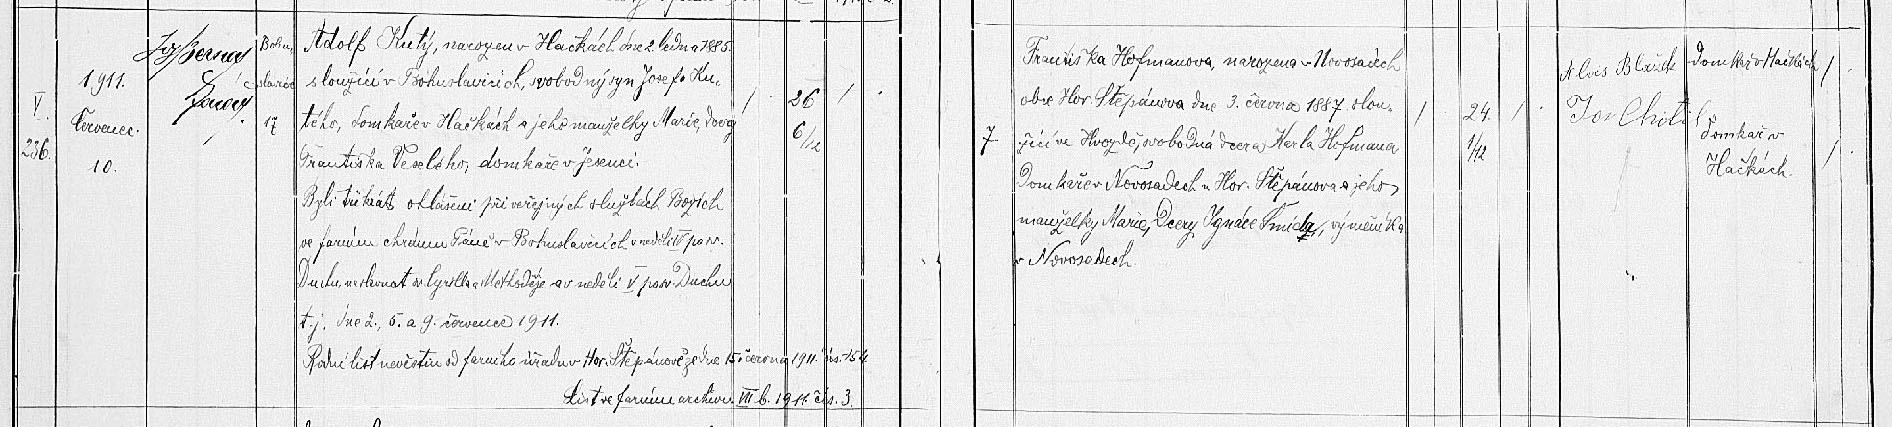 V.
236.
1911.
Červenec.
10.
Bohu
slavice
17
Adolf Kutý, narozen v Hačkách dne 2. ledna 1885.
sloužící v Bohuslavicích, svobodný syn Josefa Ku-
tého, domkaře v Hačkách a jeho manželky Marie, dcery
Františka Veselého, domkaře v Jesenci.
Byli třikrát ohlášeni při veřejných službách Božích
ve farním chrámu Páně v Bohuslavicích v neděli IV po sv.
Duchu, na slavnost sv. Cyrilla a Methoděje a v neděli V po sv. Duchu
t. j. dne 2., 5. a 9. července 1911.
Rodní list nevěstin od farního úřadu v Hor. Štěpánově ze dne 15. června 1911. čís. 154.
List ve farním archivu VIII b. 1911. čís. 3.
/ 26 /
6/12
7
Františka Hofmanova, narozena v Novosadech
obce Hor. Štěpánova dne 3. června 1887 slou-
žící ve Hvozdě, svobodná dcera Karla Hofmana
domkaře v Novosadech u Hor. Štěpánova a jeho
manželky Marie, dcery Ignáce Šmída, výměníka
v Novosadech.
/ 24. /
1/12
Alois Blažek domkář v Hačkách /
Jos Chytil domkař v
Hačkách. /